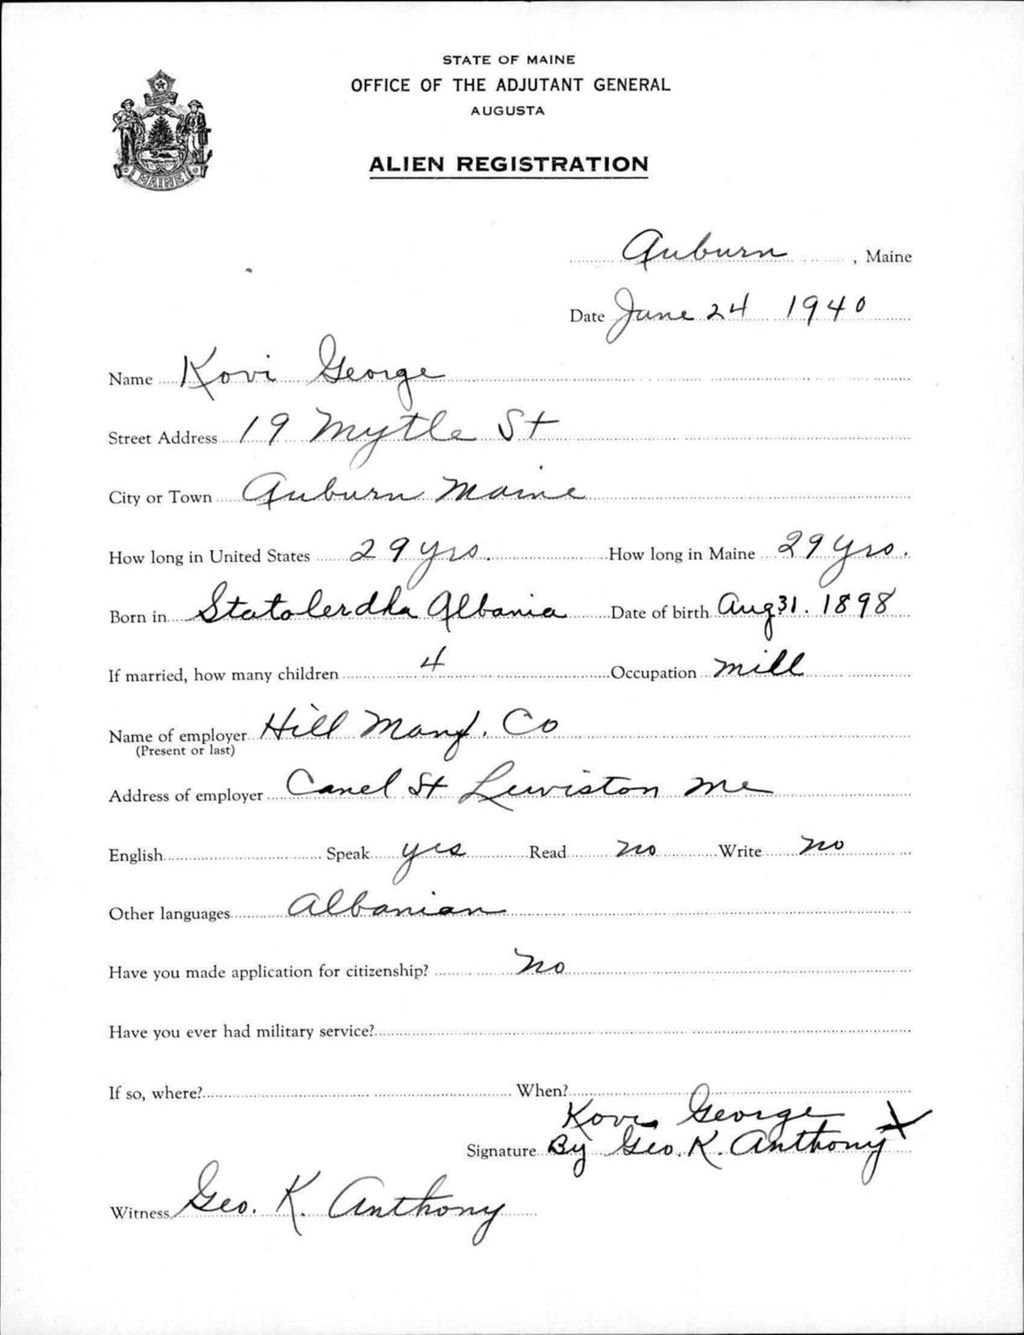 STATE OF MAINE
OFFICE OF THE ADJUTANT GENERAL
AUGUSTA
ALIEN REGISTRATION
MAINE
Auburn, Maine
Date June 24 1940
Name Kovi George
Street Address 19 Mytle St
City or Town Auburn Maine
How long in United States 29 yrs. How long in Maine 29 yrs.
Born in Statolerdha Albania Date of birth Aug 31. 1898
If married, how many children 4 Occupation Mill
Name of employer Hill Manf. Co
(Present or last)
Address of employer Canel St Lewiston Me
English Speak yes Read no Write no
Other languages Albanian
Have you made application for citizenship? No
Have you ever had military service?
If so, where? When?
Kovi George X
Signature By Geo. K. Anthony
Witness Geo. K. Anthony